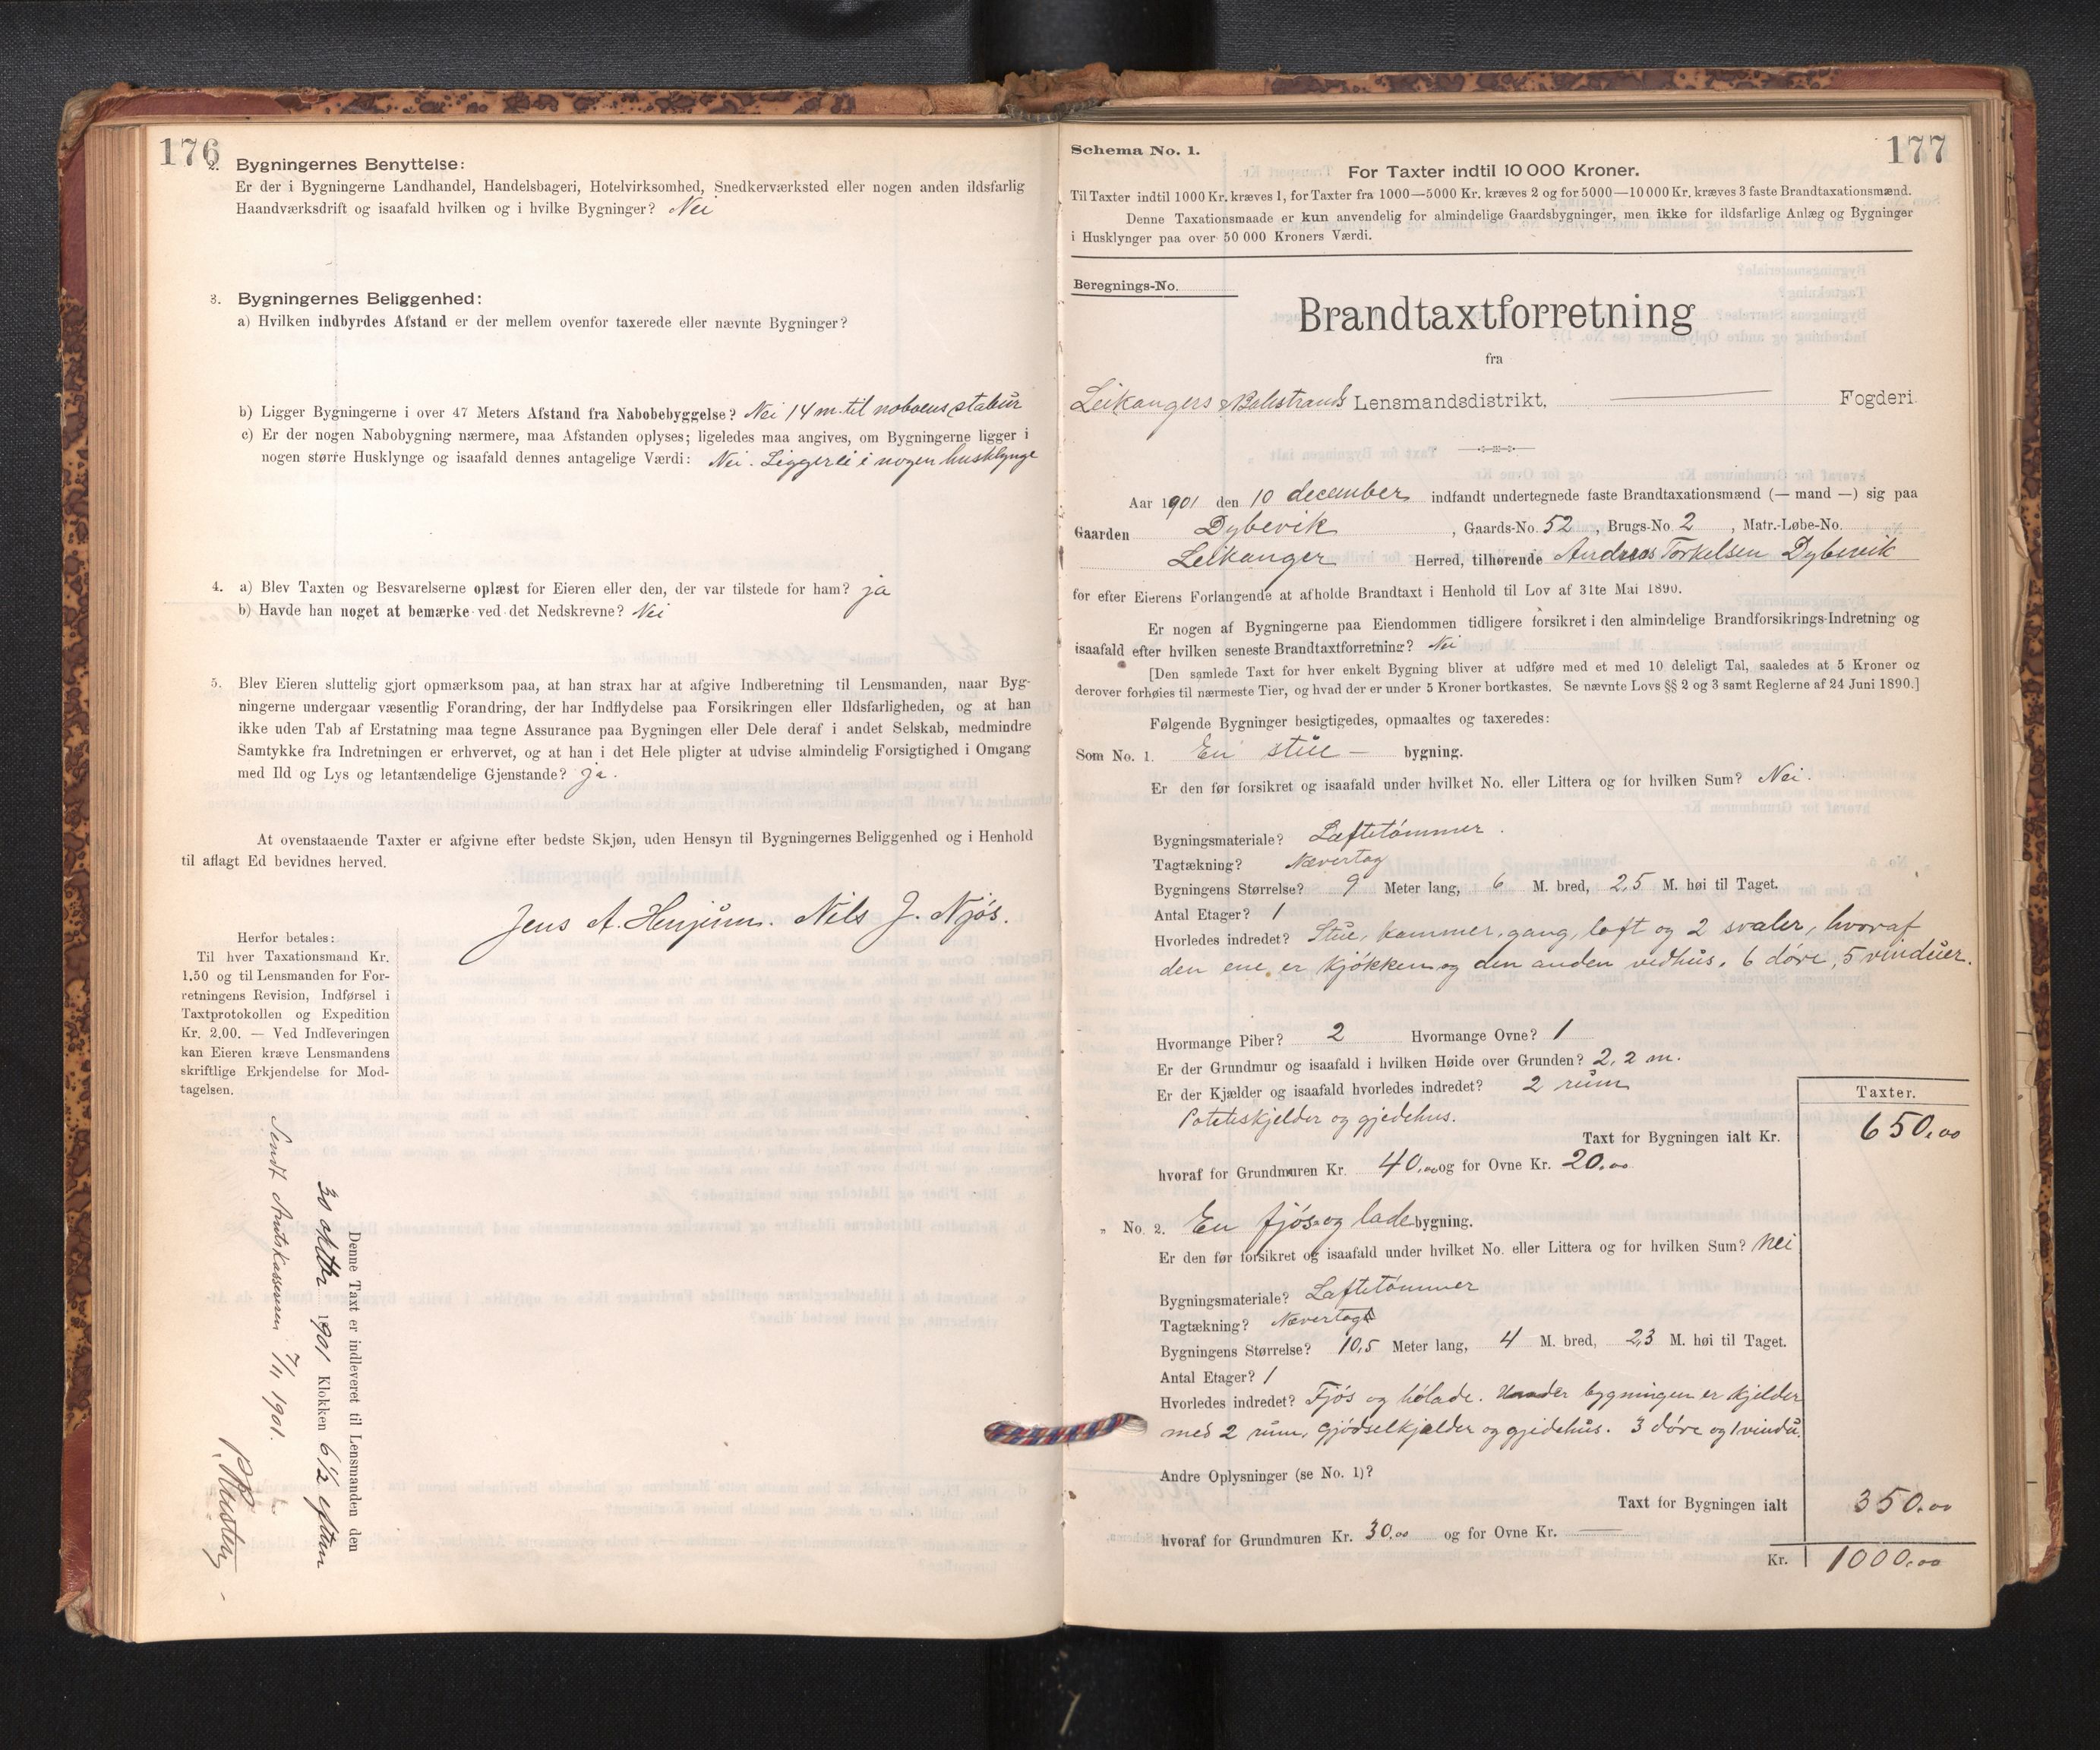 176
2. Bygningernes Benyttelse:
Er der i Bygningerne Landhandel, Handelsbageri, Hotelvirksomhed, Snedkerværksted eller nogen anden ildsfarlig
Haandværksdrift og isaafald hvilken og i hvilke Bygninger? Nei
3. Bygningernes Beliggenhed:
a) Hvilken indbyrdes Afstand er der mellem ovenfor taxerede eller nævnte Bygninger?
b) Ligger Bygningerne i over 47 Meters Afstand fra Nabobebyggelse? Nei 14 m. til naboens stabur
c) Er der nogen Nabobygning nærmere, maa Afstanden oplyses; ligeledes maa angives, om Bygningerne ligger i
nogen større Husklynge og isaafald dennes antagelige Værdi: Nei. Ligger ei i nogen husklynge
4. a) Blev Taxten og Besvarelserne oplæst for Eieren eller den, der var tilstede for ham? ja
b) Havde han noget at bemærke ved det Nedskrevne? Nei
5. Blev Eieren sluttelig gjort opmærksom paa, at han strax har at afgive Indberetning til Lensmanden, naar Byg-
ningerne undergaar væsentlig Forandring, der har Indflydelse paa Forsikringen eller Ildsfarligheden, og at han
ikke uden Tab af Erstatning maa tegne Assurance paa Bygningen eller Dele deraf i andet Selskab, medmindre
Samtykke fra Indretningen er erhvervet, og at han i det Hele pligter at udvise almindelig Forsigtighed i Omgang
med Ild og Lys og letantændelige Gjenstande? ja.
At ovenstaaende Taxter er afgivne efter bedste Skjøn, uden Hensyn til Bygningernes Beliggenhed og i Henhold
til aflagt Ed bevidnes herved.
Jens A. Henjum. Nils J. Njøs.
Herfor betales:
Til hver Taxationsmand Kr.
1.50 og til Lensmanden for For-
retningens Revision, Indførsel i
Taxtprotokollen og Expedition
Kr. 2.00. — Ved Indleveringen
kan Eieren kræve Lensmandens
skriftlige Erkjendelse for Mod-
tagelsen.
Denne Taxt er indleveret til Lensmanden den
30 oktbr 1901 Klokken 6 1/2 eftm
Sendt Amtskassereren 7/11 1901.
177
Schema No. 1.
For Taxter indtil 10 000 Kroner.
Til Taxter indtil 1000 Kr. kræves 1, for Taxter fra 1000—5000 Kr. kræves 2 og for 5000—10 000 Kr. kræves 3 faste Brandtaxationsmænd.
Denne Taxationsmaade er kun anvendelig for almindelige Gaardsbygninger, men ikke for ildsfarlige Anlæg og Bygninger
i Husklynger paa over 50 000 Kroners Værdi.
Beregnings-No.
Brandtaxtforretning
fra
Leikangers & Balestrands Lensmandsdistrikt, — Fogderi
Aar 1901 den 10 december indfandt undertegnede faste Brandtaxationsmænd (— mand —) sig paa
Gaarden Dybevik, Gaards-No. 52, Brugs-No. 2, Matr.-Løbe-No.
Leikanger Herred, tilhørende Andreas Torkelsen Dybevik
for efter Eierens Forlangende at afholde Brandtaxt i Henhold til Lov af 31te Mai 1890.
Er nogen af Bygningerne paa Eiendommen tidligere forsikret i den almindelige Brandforsikrings-Indretning og
isaafald efter hvilken seneste Brandtaxtforretning? Nei
[Den samlede Taxt for hver enkelt Bygning bliver at udføre med et med 10 deleligt Tal, saaledes at 5 Kroner og
derover forhøies til nærmeste Tier, og hvad der er under 5 Kroner bortkastes. Se nævnte Lovs §§ 2 og 3 samt Reglerne af 24 Juni 1890.]
Følgende Bygninger besigtigedes, opmaaltes og taxeredes:
Som No. 1. En stue — bygning.
Er den før forsikret og isaafald under hvilket No. eller Littera og for hvilken Sum? Nei.
Bygningsmateriale? Laftetømmer.
Tagtækning? Nævertag
Bygningens Størrelse? 9 Meter lang, 6 M. bred, 2,5 M. høi til Taget.
Antal Etager? 1
Hvorledes indredet? Stue, kammer, gang, loft og 2 svaler, hvoraf
den ene er kjøkken og den anden vedhus. 6 døre, 5 vinduer.
Hvormange Piber? 2 Hvormange Ovne? 1
Er der Grundmur og isaafald i hvilken Høide over Grunden? 2,2 m.
Er der Kjælder og isaafald hvorledes indredet? 2 rum
Poteteskjelder og gjedehus.
Taxter.
Taxt for Bygningen ialt Kr. 650,00
hvoraf for Grundmuren Kr. 40,00 og for Ovne Kr. 20,00
„ No. 2. En fjøs og lade bygning.
Er den før forsikret og isaafald under hvilket No. eller Littera og for hvilken Sum? Nei
Bygningsmateriale? Laftetømmer
Tagtækning? Nævertag
Bygningens Størrelse? 10,5 Meter lang, 4 M. bred, 2,3 M. høi til Taget.
Antal Etager? 1
Hvorledes indredet? Fjøs og hølade. Under bygningen er kjelder
med 2 rum, gjødselkjælder og gjedehus. 3 døre og 1 vindu.
Andre Oplysninger (se No. 1)?
Taxt for Bygningen ialt 350,00
hvoraf for Grundmuren Kr. 30,00 og for Ovne Kr. —
Kr. 1000,00